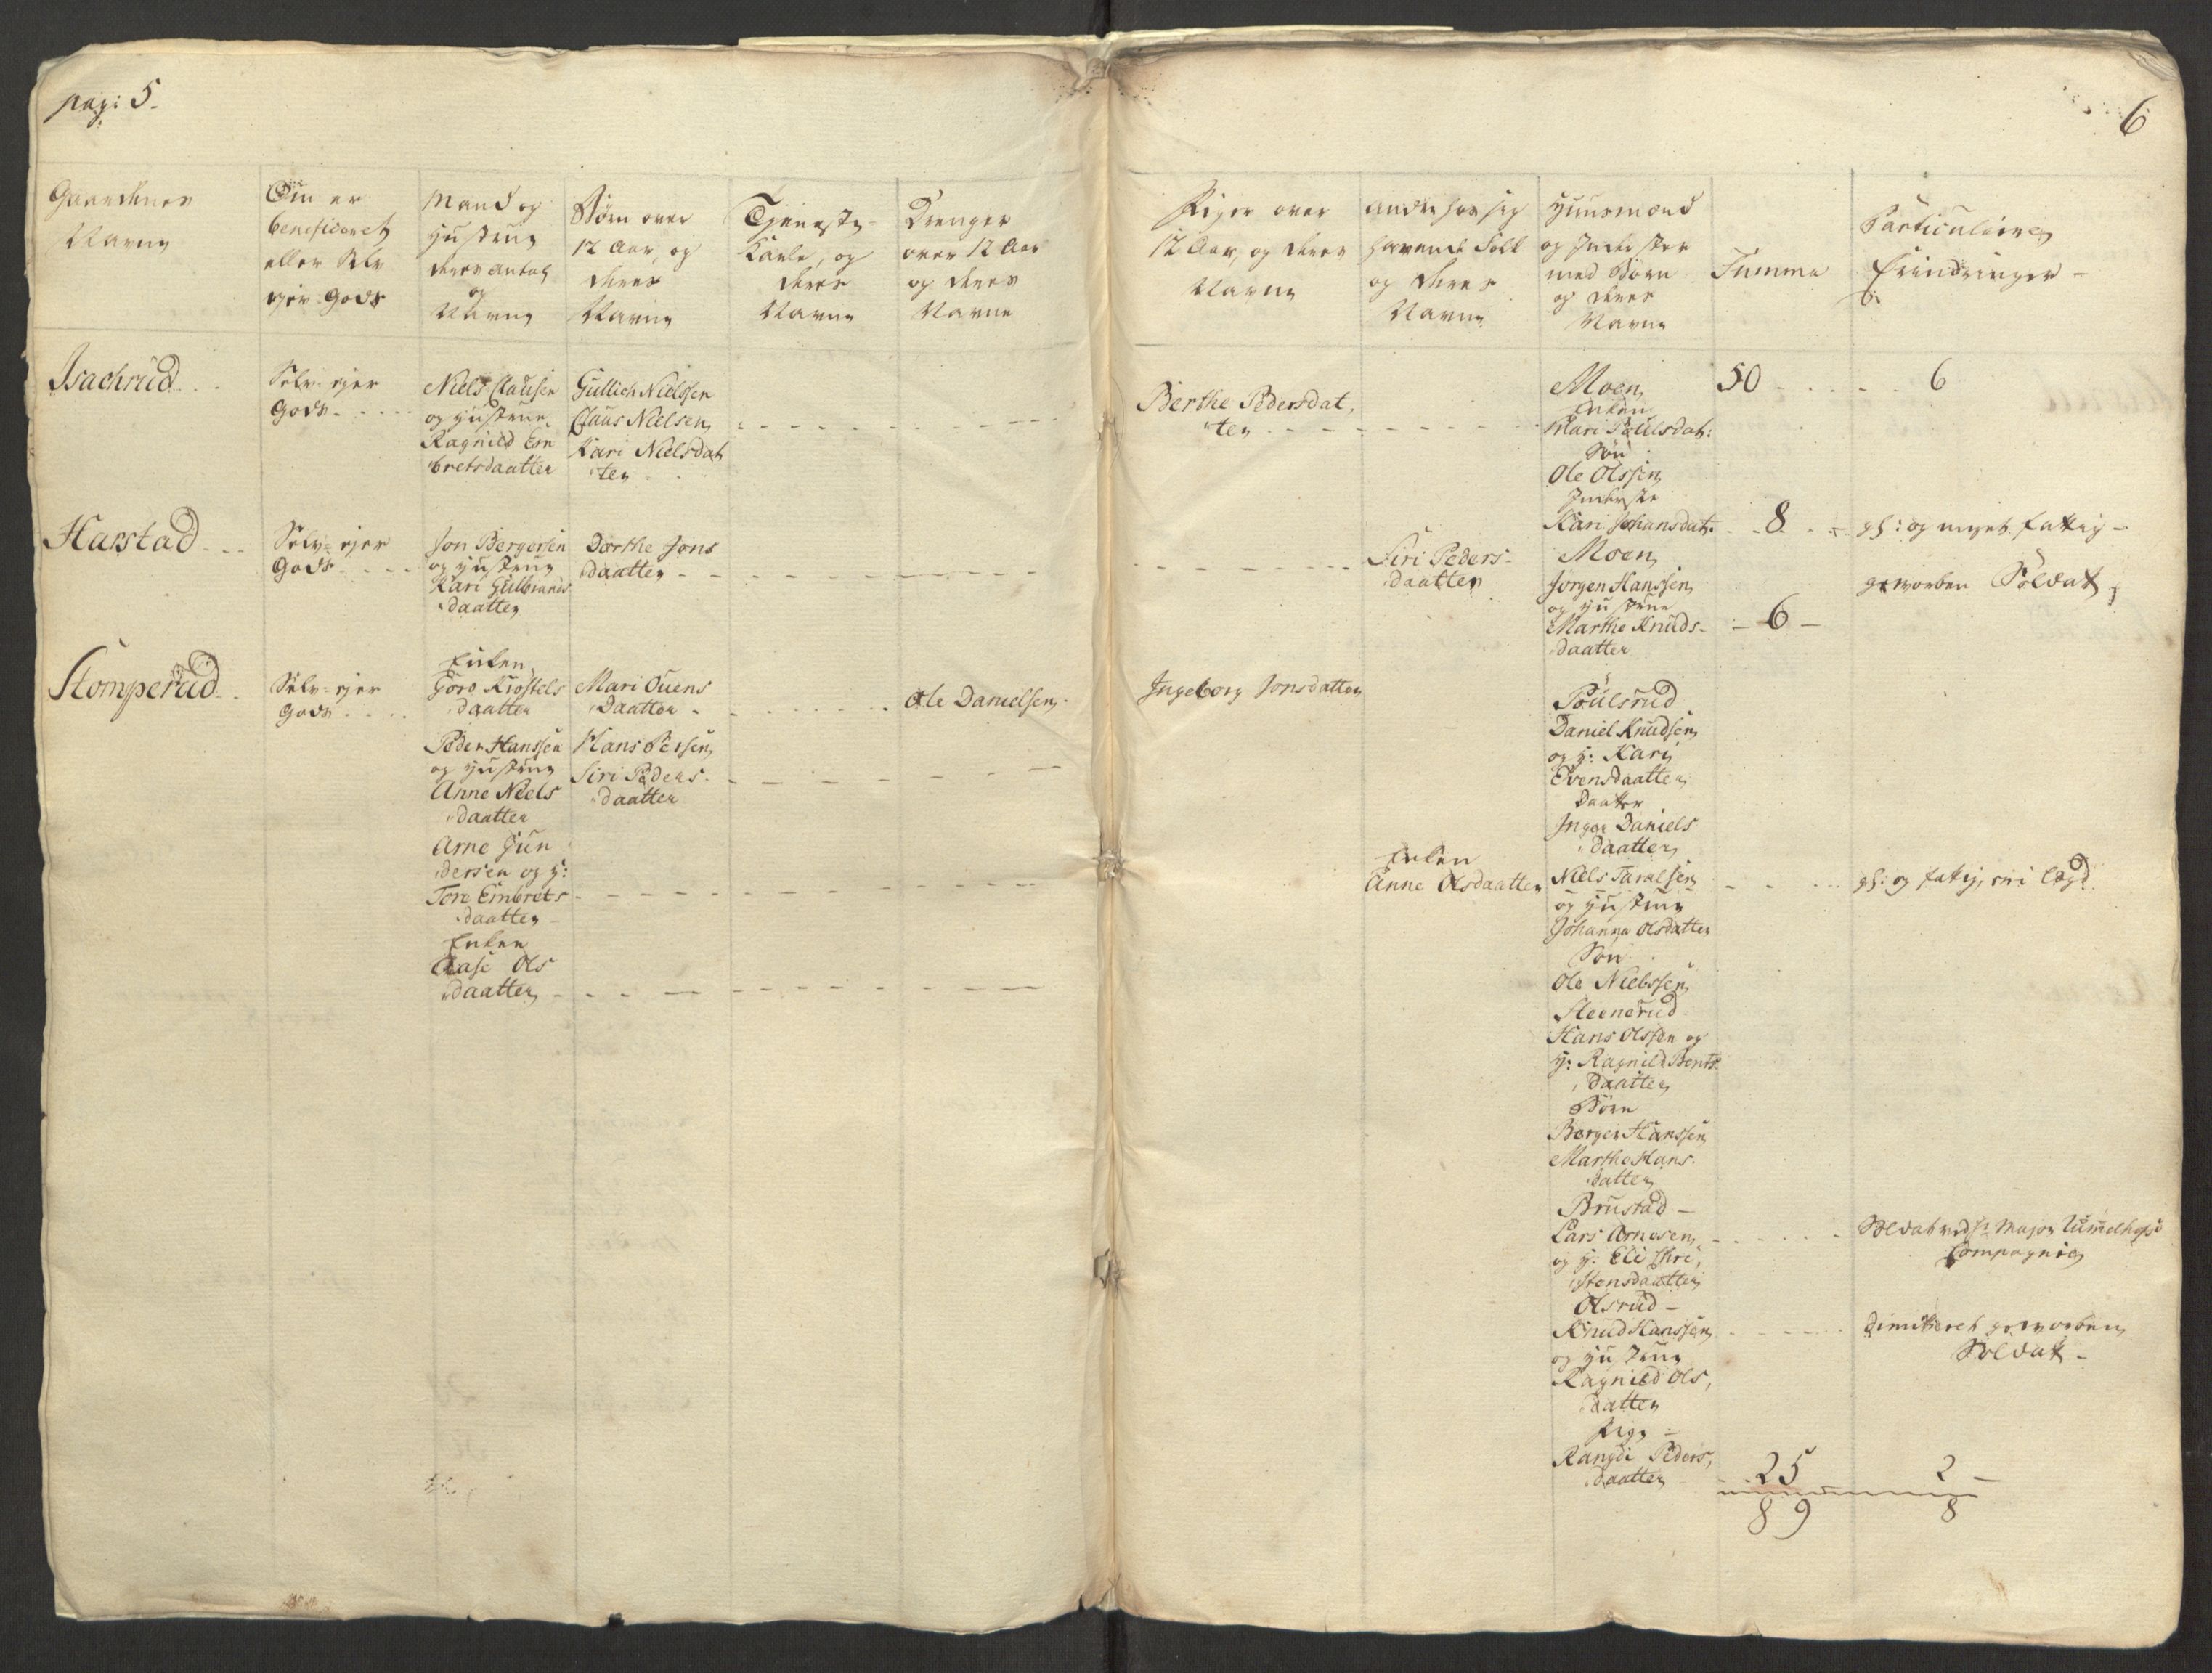 pag: 5.
Gaardenes
Navne
Om er
beneficeret
eller Selv
ejer-Gods
Mand og
Hustrue
deres antal
og
Navne
Børn over
12 Aar, og
deres
Navne
Tjeneste-
Karle, og
deres
Navne
Drenge
over 12 Aar
og deres
Navne
Isachrud
Selv-ejer
Gods
Niels Clausen
og Hustrue
Ragnild Em
bretsdaatter
Gullich Nielssen
Claus Nielsen
Kari Nielsdat
ter
Harstad
Selv-ejer
Gods
Jon Bergersen
og Hustrue
Kari Gulbrands
daatter
Dorthe Jons
daatter
Stomperud
Selv-ejer
Gods
Enken
Goro Kiostels
daatter
Mari Ouens
Daatter
Ole Danielsen
Peder Hanssen
og Hustrue
Anne Niels
daatter
Hans Persen
Siri Peders-
daatter
Arne Gun
dersen og H:
Tore Embrets
daatter
Enken
Aase Ols
daatter
6
Piger over
12 Aar, og deres
Navne
andre hos sig
havende Folk
og deres
Navne
Huusmænd
og Inderster
med Børn
og deres
Navne
Summa
Particulaire
Erindringer -
Berthe Pedersdat,
ter
Moen
Enken
Mari Paulsdat:
Søn
Ole Olssen
Inderste
50
6
Kari Johansdat:
8
gl: og meget fattig -
Siri Peders-
daatter
Moen
Jorgen Hanssen
og Hustrue
Marthe Knuds-
daatter
6
geworben Soldat
Ingeborg Jonsdatter
Poulsrud
Daniel Knudsen
og H: Kari
Evensdaatter
Daatter
Inger Daniels
daatter
Enken
Anne Olsdaatter
Niels Taralsen
og Hustrue
Johanna Olsdatter
Søn
Ole Nielssen
gl: og fattig, er i lægd
Steenerud
Hans Olssen og
H: Ragnild Bents
daatter
Børn
Berger Hanssen
Marthe Hans
datter
Brustad -
Lars Arnesen
og H: Eli Chri,
stensdaatter
Soldat ved Major
Compagnie
Olsrud -
Knud Hanssen
og Hustrue
Ragnild Ols,
datter
Pige
Rangdi Peders,
daatter
dimitteret geworben
Soldat -
25
2
89
8